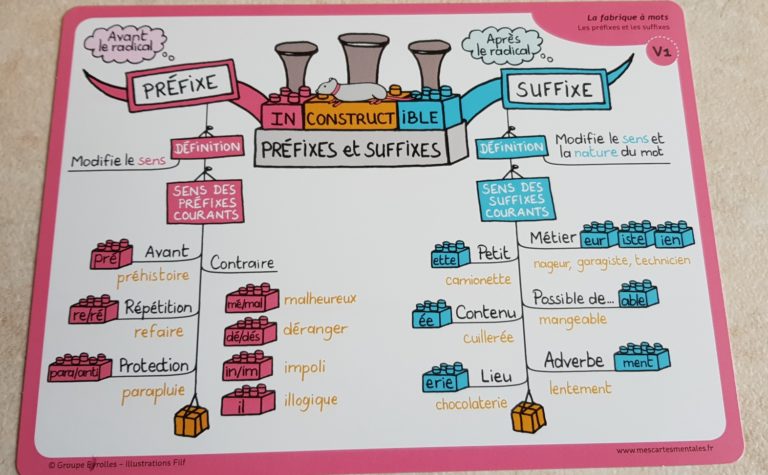 La fabrique à mots
Les préfixes et les suffixes
V1
Avant
le radical
Après
le radical
PRÉFiXE
SUFFiXE
IN CONSTRUCT iBLE
PRÉFiXES et SUFFiXES
DÉFiNiTiON
Modifie le sens
DÉFiNiTiON
Modifie le sens et
la nature du mot
SENS DES
PRÉFiXES
COURANTS
SENS DES
SUFFiXES
COURANTS
pré Avant
préhistoire
re/ré Répétition
refaire
para/anti Protection
parapluie
Contraire
mé/mal malheureux
dé/dés déranger
in/im impoli
il illogique
ette Petit
camionette
ée Contenu
cuillerée
erie Lieu
chocolaterie
Métier eur iste ien
nageur, garagiste, technicien
Possible de... able
mangeable
Adverbe ment
lentement
© Groupe Eyrolles – Illustrations Filf
www.mescartesmentales.fr